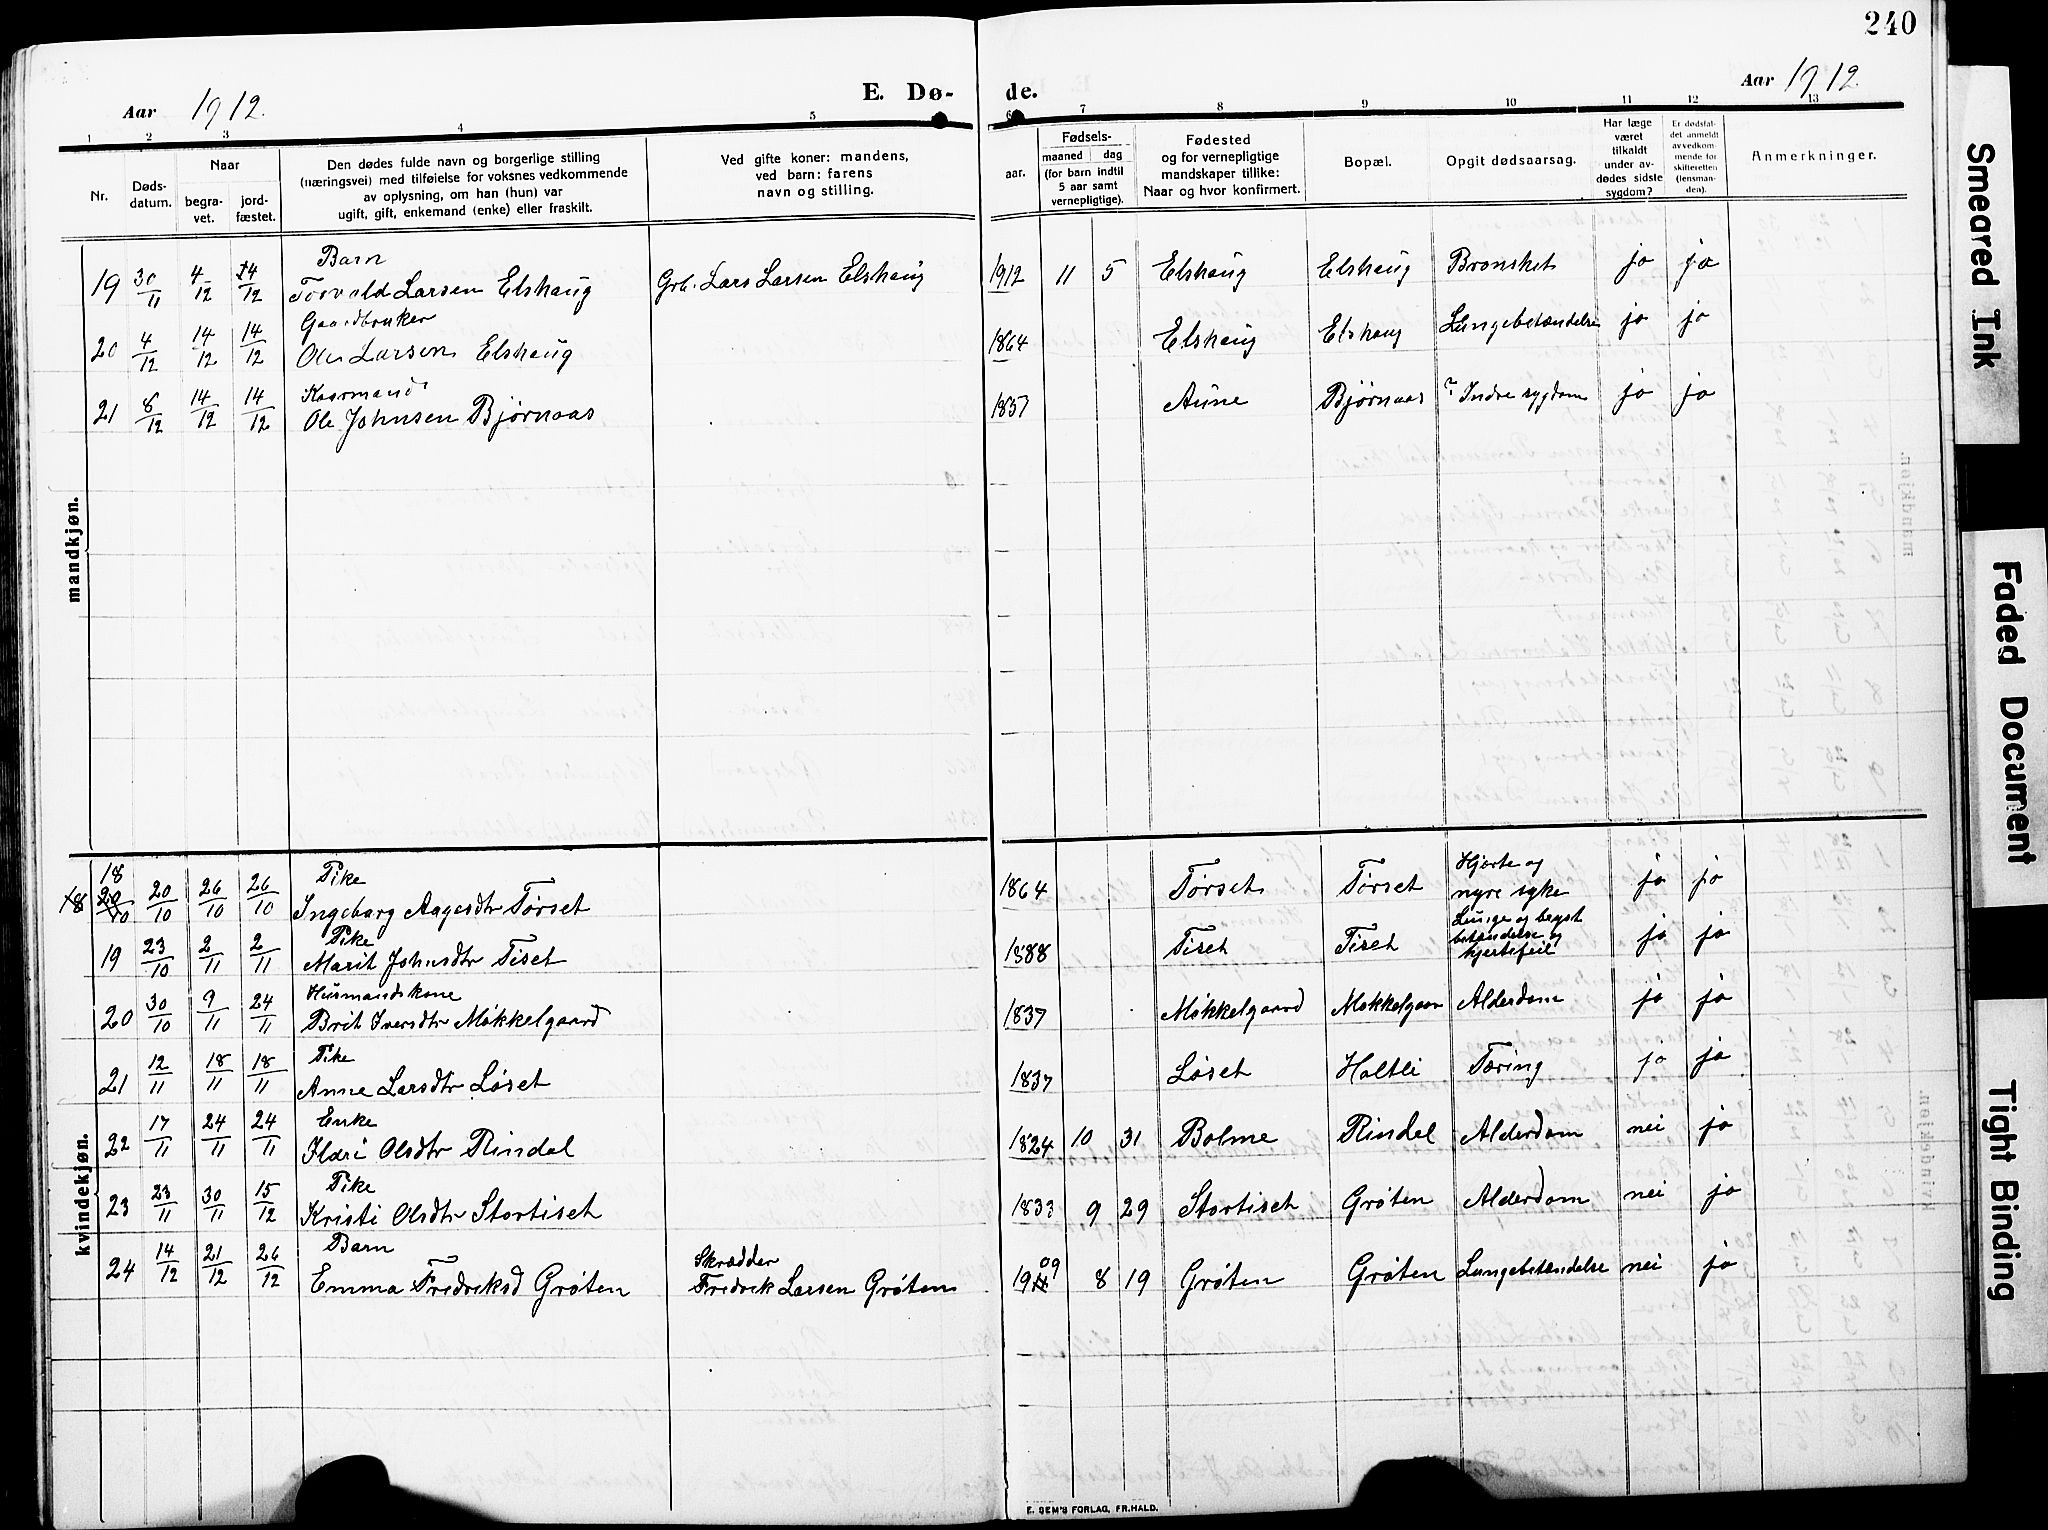 240
Aar 1912.
E. Dø-
de.
Aar 1912.
1 2 3 4 5 6 7 8 9 10 11 12 13
Nr.
Døds-
datum.
Naar
begra-
vet.
jord-
fæstet.
Den dødes fulde navn og borgerlige stilling
(næringsvei) med tilføielse for voksnes vedkommende
av oplysning, om han (hun) var
ugift, gift, enkemand (enke) eller fraskilt.
Ved gifte koner: mandens,
ved barn: farens
navn og stilling.
aar.
Fødsels-
maaned dag
(for barn indtil
5 aar samt
vernepligtige).
Fødested
og for vernepligtige
mandskaper tillike:
Naar og hvor konfirmert.
Bopæl.
Opgit dødsaarsag.
Har læge
været
tilkaldt
under av-
dødes sidste
sygdom?
Er dødsfal-
det anmeldt
av vedkom-
mende for
skifteretten
(lensman-
den).
Anmerkninger.
mandkjøn.
Barn
19 30/11 4/12 14/12 Torvald Larsen Elshaug Grb. Lars Larsen Elshaug 1912 11 5 Elshaug Elshaug Bronskit ja ja
Gaardbruker
20 4/12 14/12 14/12 Ole Larsen Elshaug 1864 Elshaug Elshaug Lungebetændelse ja ja
Kaarmand
21 8/12 14/12 14/12 Ole Johnsen Bjørnaas 1837 Aune Bjørnaas ? Indre sygdom ja ja
kvindekjøn.
18 Pike Hjerte og
18 20/10 20/10 26/10 26/10 Ingeborg Aagesdtr Tørset 1864 Tørset Tørset nyre syke ja ja
Pike Lunge og bryst
19 23/10 2/11 2/11 Marit Johnsdtr Tiset 1888 Tiset Tiset betændelse og ja ja
hjertefeil
Husmandskone
20 30/10 9/11 24/11 Brit Iversdtr Møkkelgaard 1837 Møkkelgaard Møkkelgaar Alderdom ja ja
Pike
21 12/11 18/11 18/11 Anne Larsdtr Løset 1837 Løset Holtli Tæring ja ja
Enke
22 17/11 24/11 24/11 Ildri Olsdtr Rindal 1824 10 31 Bolme Rindal Alderdom nei ja
Pike
23 23/11 30/11 15/12 Kristi Olsdtr Stortiset 1833 9 29 Stortiset Grøten Alderdom nei ja
Barn Skrædder
24 14/12 21/12 26/12 Emma Fredriksd Grøten Fredrik Larsen Grøten 1909 8 19 Grøten Grøten Lungebetændelse nei ja
E. SEM'S FORLAG, FR.HALD.
Smeared Ink
Faded Document
Tight Binding